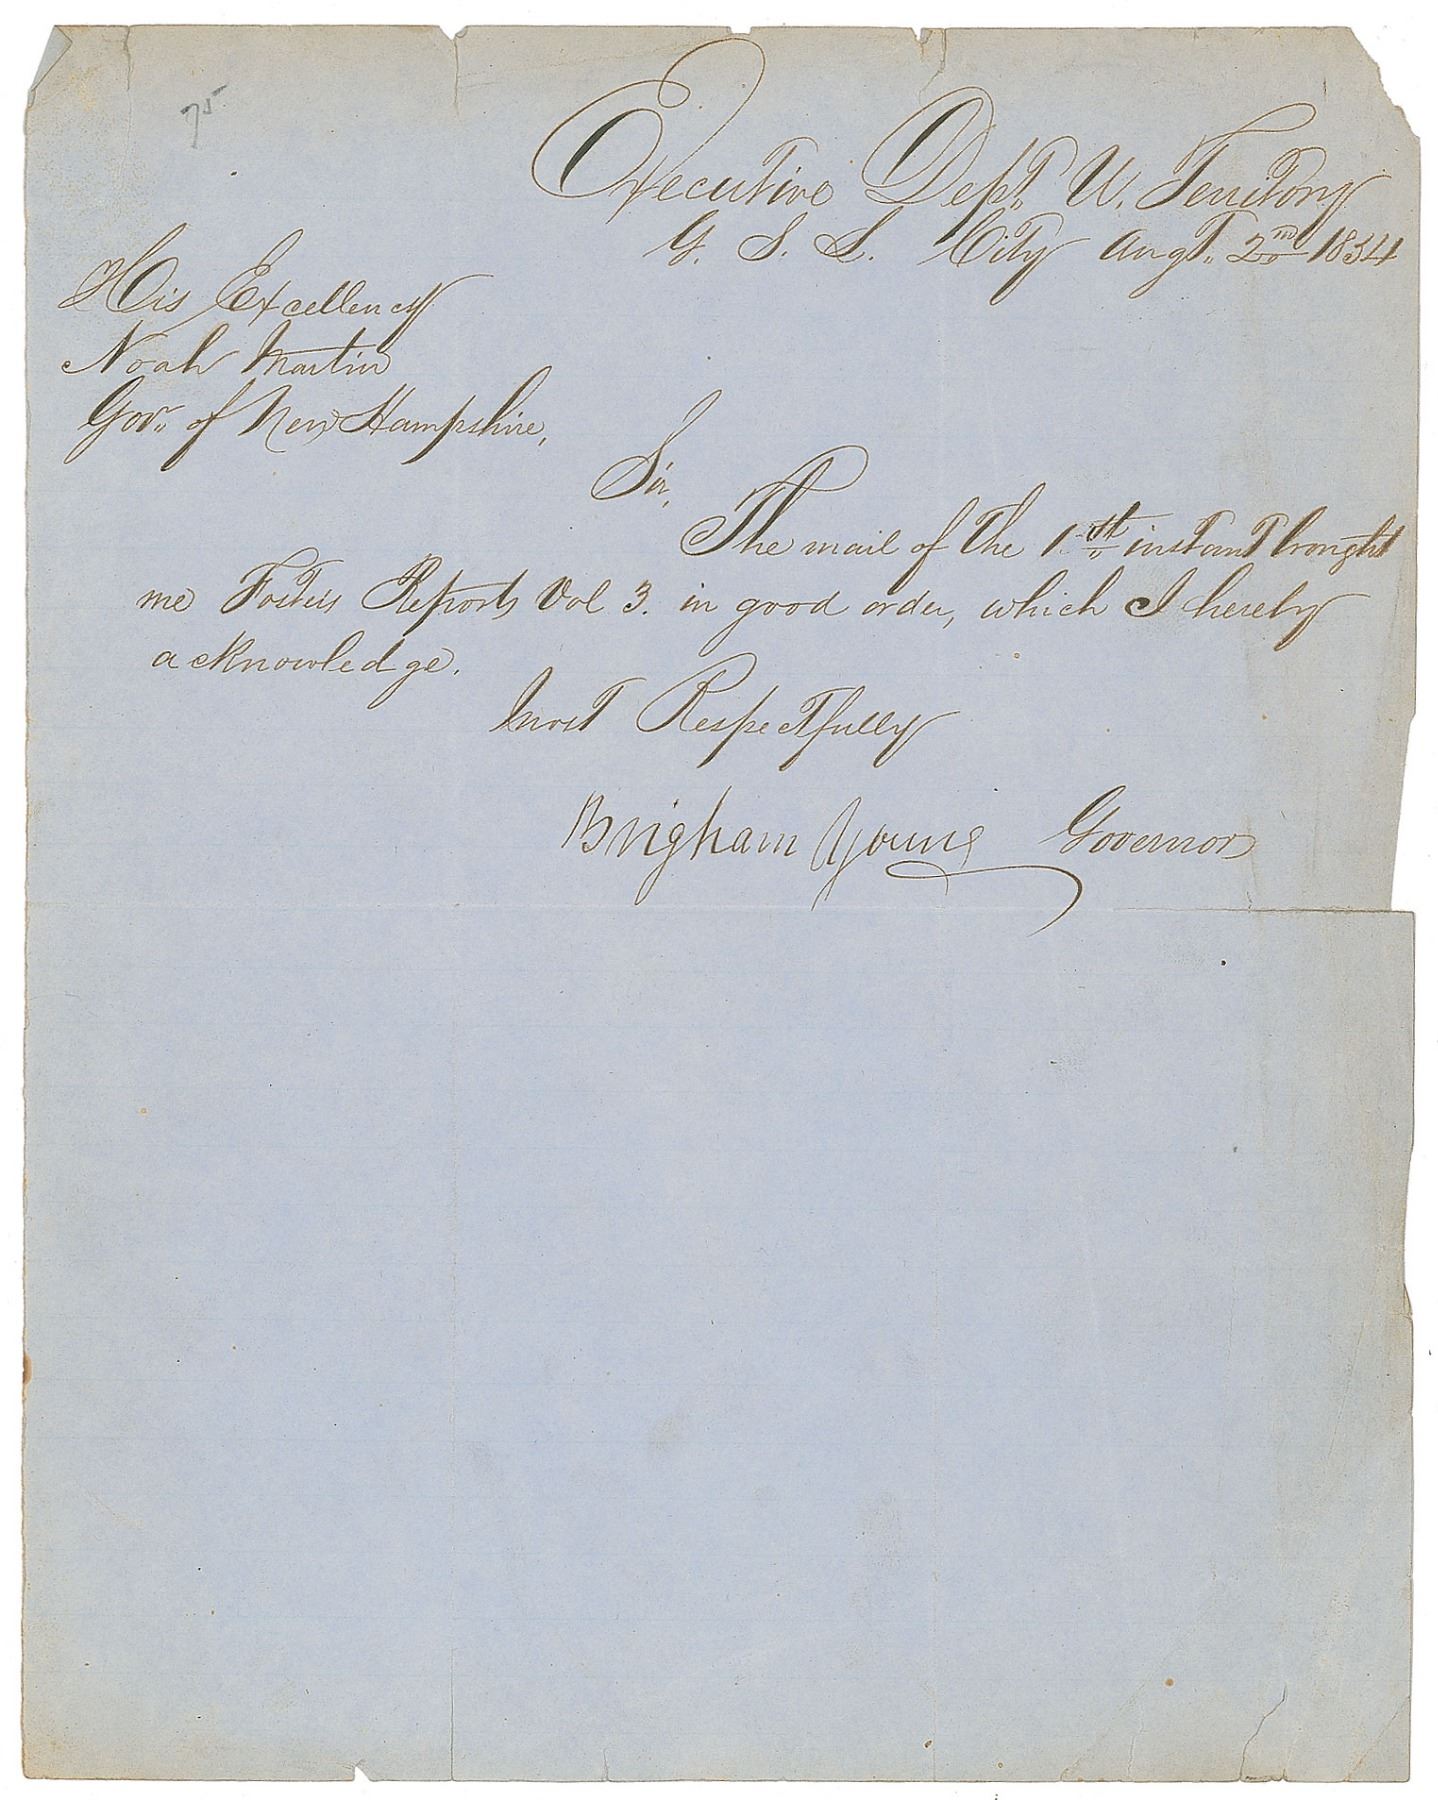 75
Executive Dept. U. Territory
G. S. L. City Augt. 2nd 1854
His Excellency
Noah Martin
Gov. of New Hampshire,
Sir,
The mail of the 1st instant brought
me Fosters Reports Vol 3. in good order, which I hereby
acknowledge.
Most Respectfully
Brigham Young Governor